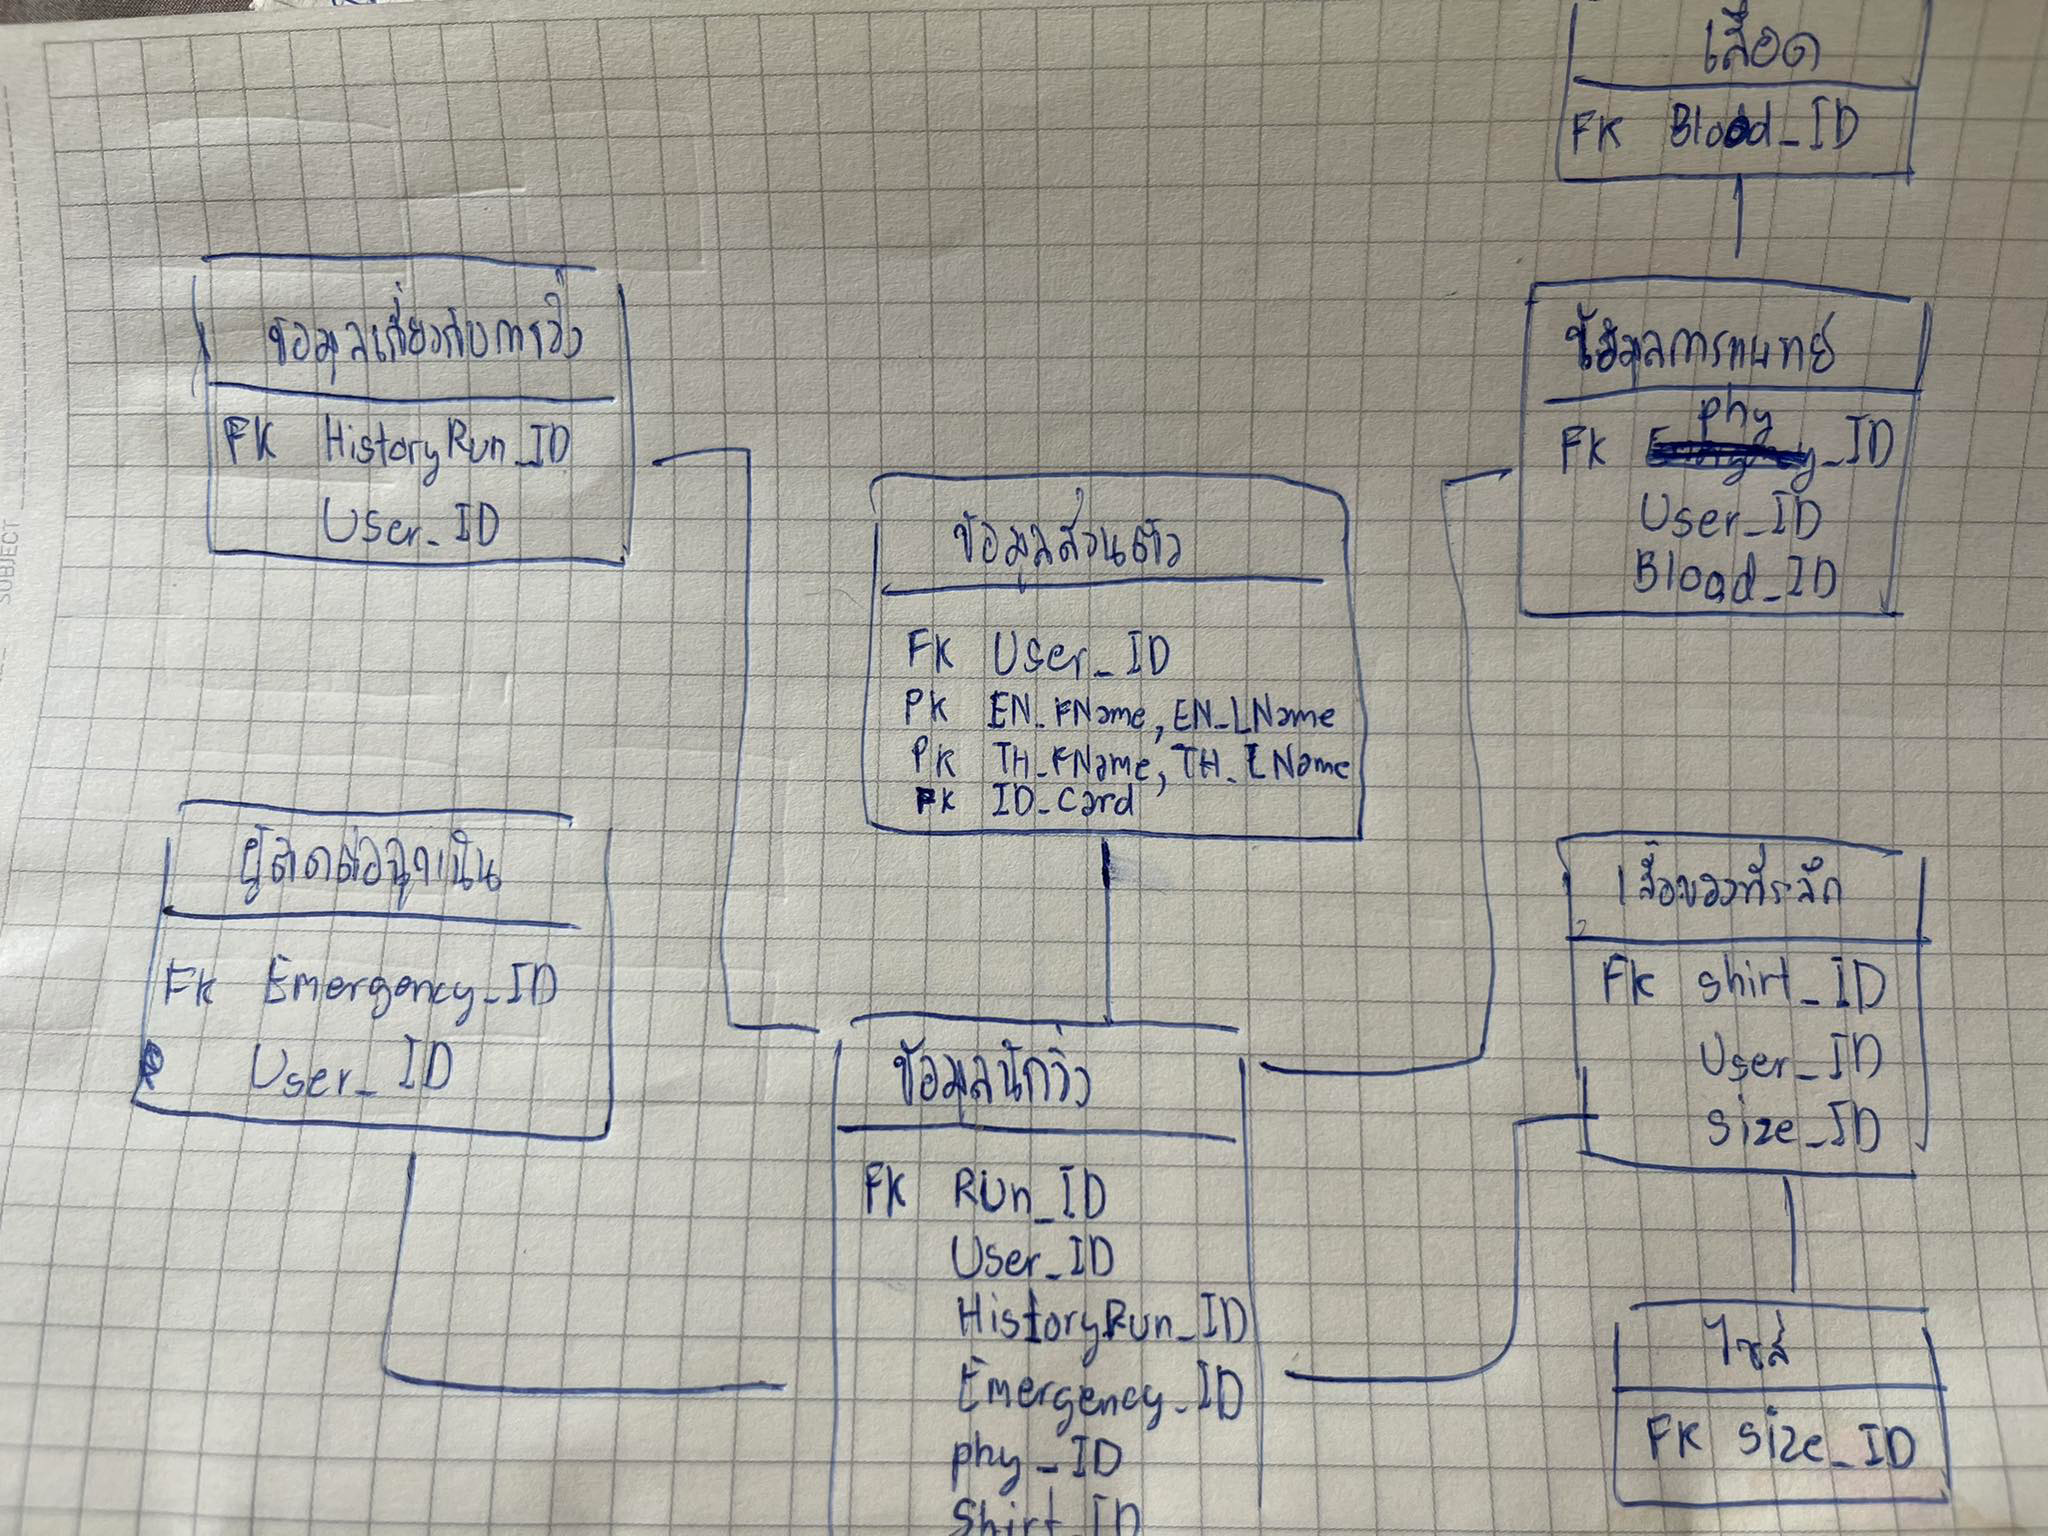 เลือด
FK Blood_ID
ข้อมูลเกี่ยวกับการวิ่ง
FK HistoryRun_ID
User_ID
ข้อมูลการแพทย์
phy
FK _ID
User_ID
Blood_ID
ข้อมูลส่วนตัว
FK User_ID
PK EN_FName, EN_LName
PK TH_FName, TH_LName
FK ID_Card
ผู้ติดต่อฉุกเฉิน
FK Emergency_ID
User_ID
เสื้อของที่ระลึก
FK shirt_ID
User_ID
Size_ID
ข้อมูลนักวิ่ง
FK Run_ID
User_ID
HistoryRun_ID
Emergency_ID
phy_ID
Shirt_ID
ไซส์
FK size_ID
SUBJECT